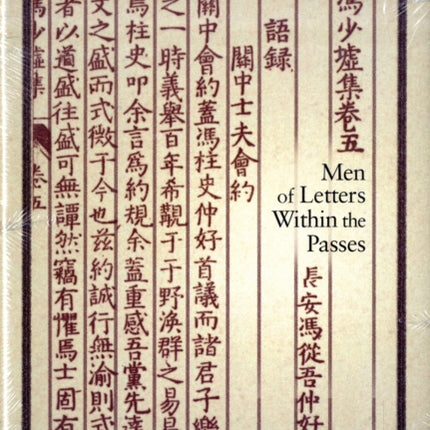 馮少墟集卷五
長安馮從吾仲好
語録
關中士夫會約
關中會約蓋馮柱史仲好首議而諸君子樂
之一時義舉百年希覯于于野渙群之易
馮柱史叩余言爲約規余蓋重感吾黨先達
文之盛而式微于今也兹約誠行無渝則式
者以道盛往盛可無譚然竊有懼焉士固有
馮少墟集 卷五
Men
of Letters
Within the
Passes